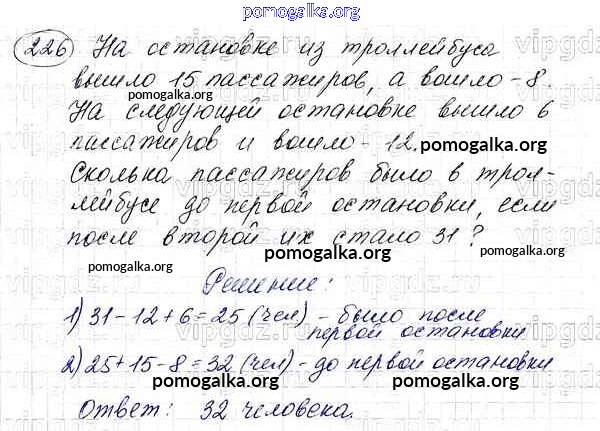 pomogalka.org
226 На остановке из троллейбуса
вышло 15 пассажиров, а вошло - 8.
На следующей остановке вышло 6
пассажиров и вошло - 12.
pomogalka.org
Сколька пассажиров было в трол-
лейбусе до первой остановки, если
после второй их стало 31?
pomogalka.org
pomogalka.org
Решение:
1) 31 - 12 + 6 = 25 (чел) - было после
первой остановки
2) 25 + 15 - 8 = 32 (чел) - до первой остановки
pomogalka.org
Ответ: 32 человека.
pomogalka.org